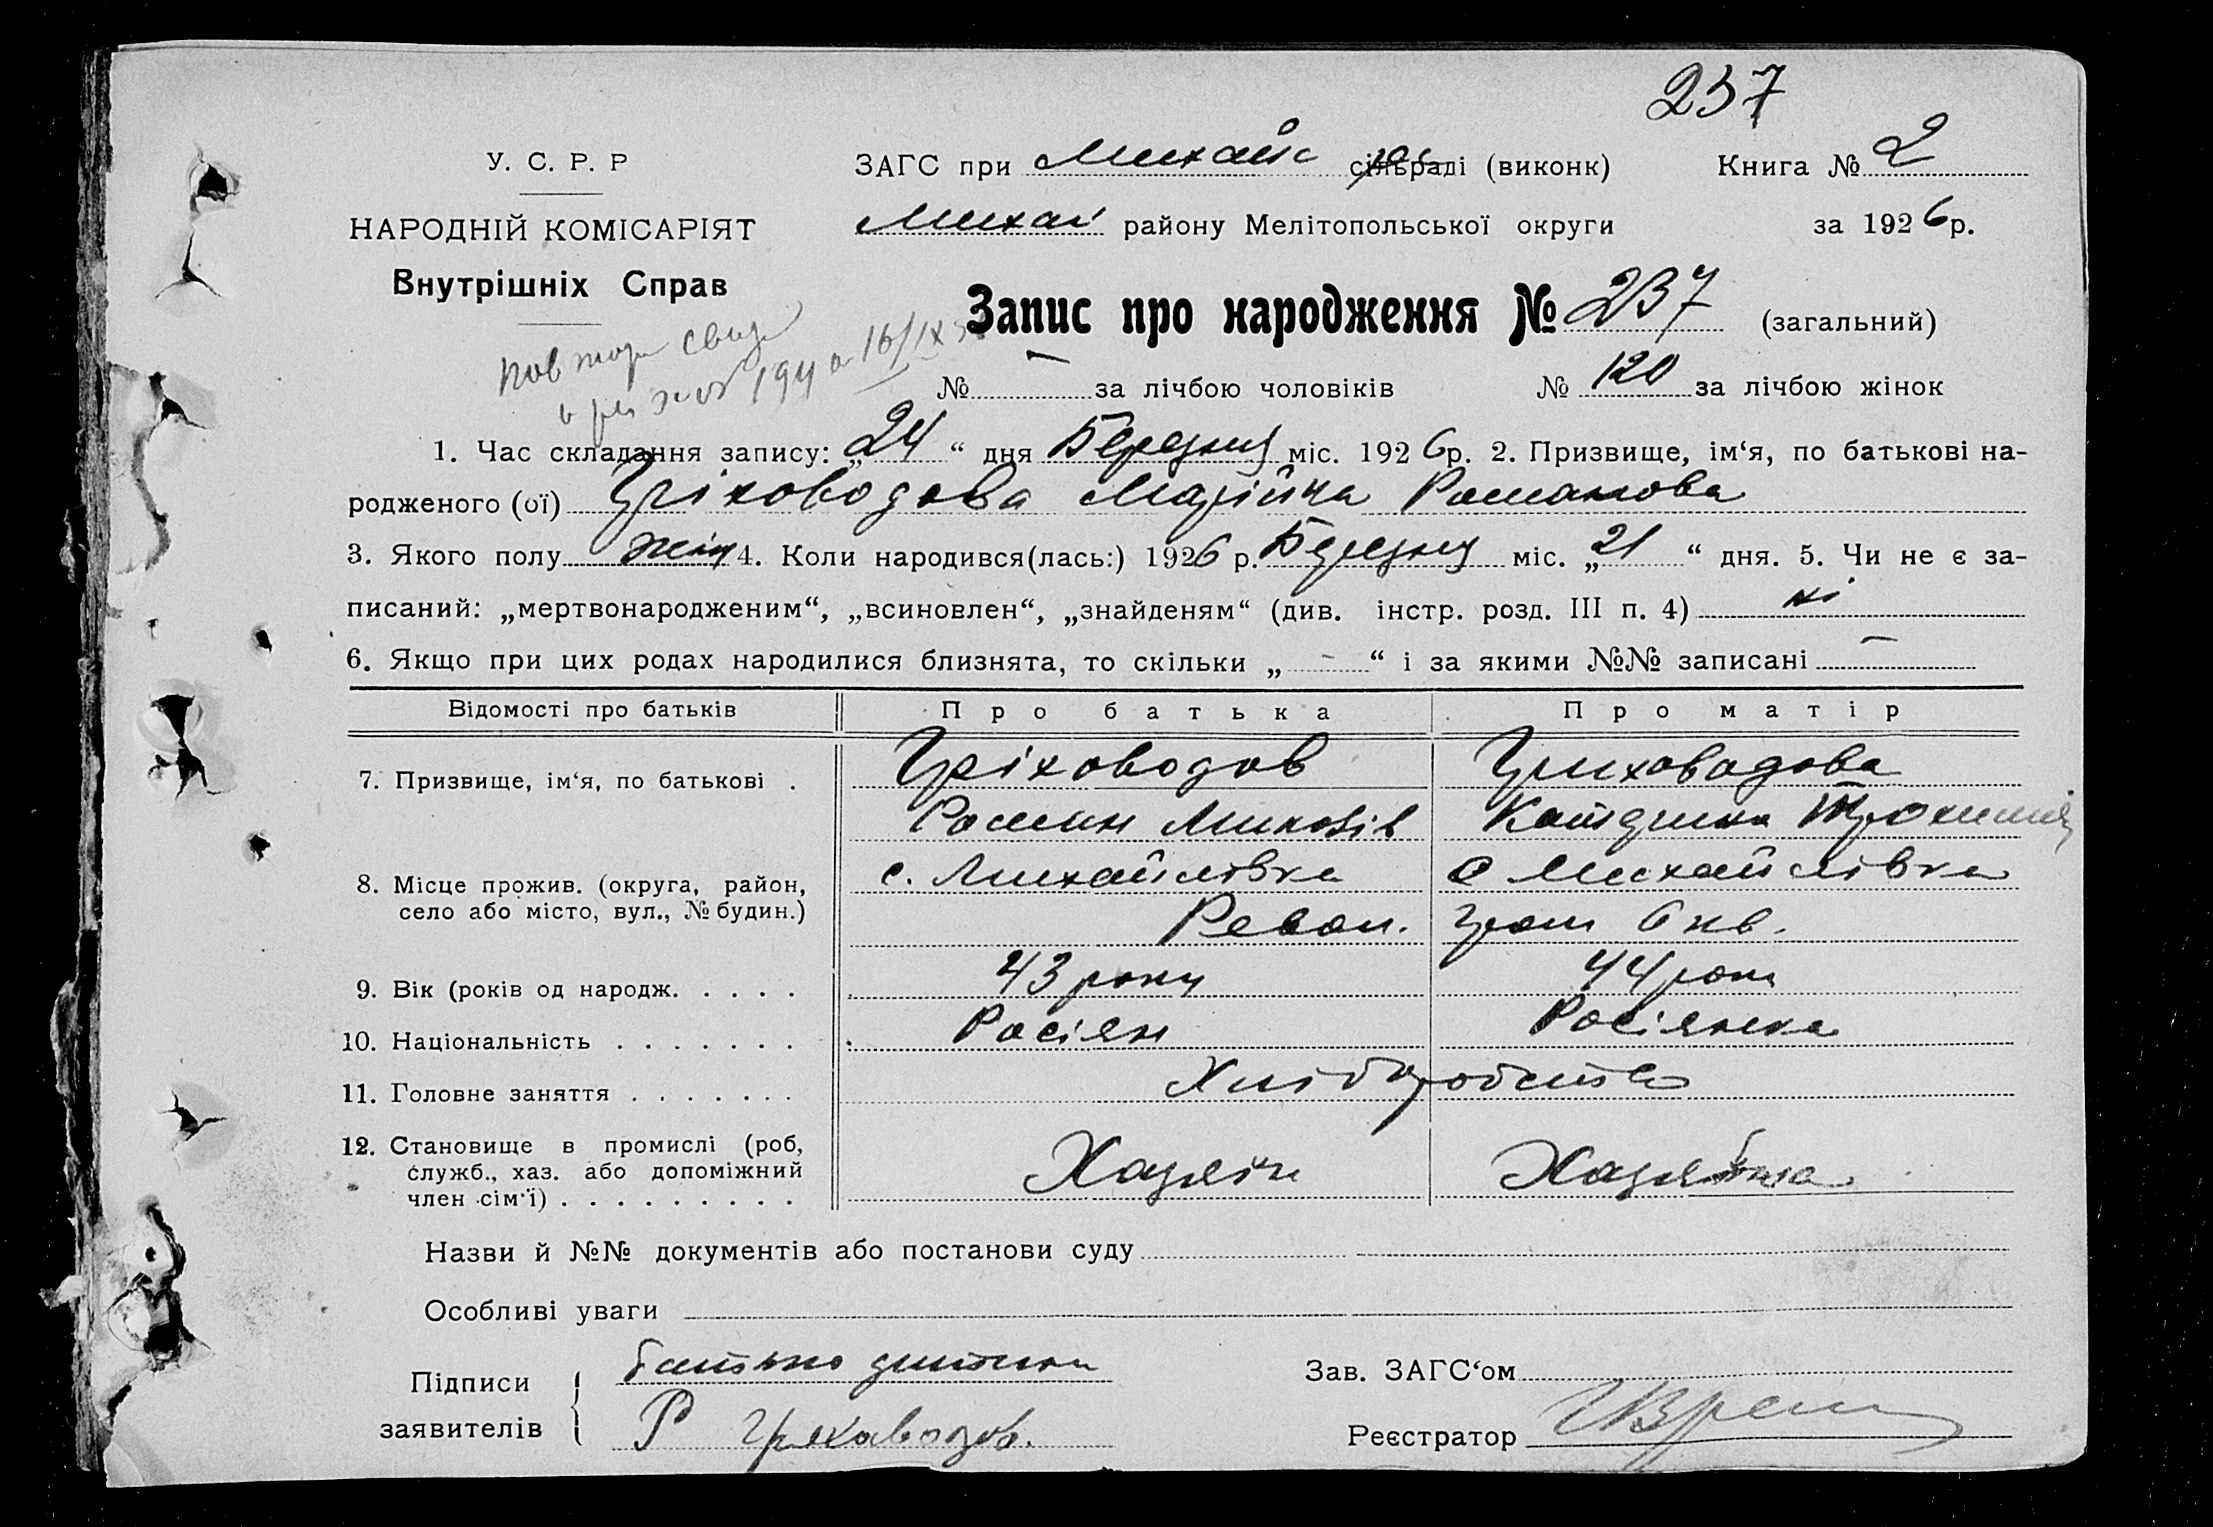 237
У. С. Р. Р
ЗАГС при Михайл сільраді (виконк) Книга № 2
НАРОДНІЙ КОМІСАРІЯТ
Михай району Мелітопольської округи за 1926р.
Внутрішніх Справ
Запис про народження № 237 (загальний)
Повтор свид
194 16/IX
№ — за лічбою чоловіків № 120 за лічбою жінок
1. Час складання запису: „24“ дня Березня міс. 1926р. 2. Призвище, ім‘я, по батькові на-
родженого (ої) Гріховодова Марійка Романова
3. Якого полу жін 4. Коли народився(лась:) 1926 р. Березня міс. „21“ дня. 5. Чи не є за-
писаний: „мертвонародженим“, „всиновлен“, „знайденям“ (див. інстр. розд. III п. 4) ні
6. Якщо при цих родах народилися близнята, то скільки „ - “ і за якими №№ записані —
Відомості про батьків Про батька Про матір
7. Призвище, ім‘я, по батькові . Гріховодов Гриховадова
Роман Миковів Катерина
8. Місце прожив. (округа, район, с. Михайлівка с Михайлівка
село або місто, вул., № будин.) Револ. гром 6 кв.
9. Вік (років од народж. . . . . 43 роки 44 роки
10. Національність . . . . . . . Росіян Росіянка
11. Головне заняття . . . . . . . Хліборобство
12. Становище в промислі (роб, Хазяін Хазяйка
служб., хаз. або допоміжний
член сім‘ї) . . . . . . . . .
Назви й №№ документів або постанови суду
Особливі уваги
Підписи батько дитини Зав. ЗАГС‘ом
заявителів Р Грихаводов. Реєстратор